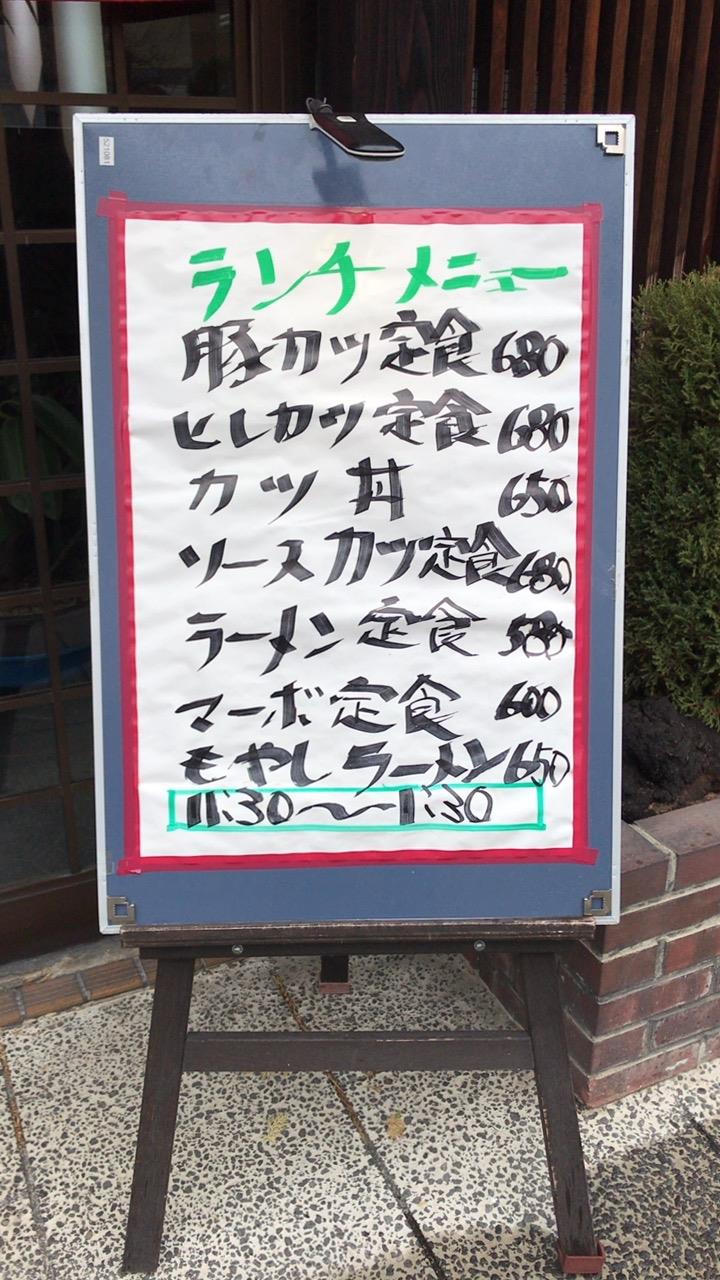 ランチメニュー
豚カツ定食 680
ヒレカツ定食 680
カツ丼 650
ソースカツ定食 680
ラーメン定食
マーボ定食 600
もやしラーメン 650
11:30〜1:30
521081